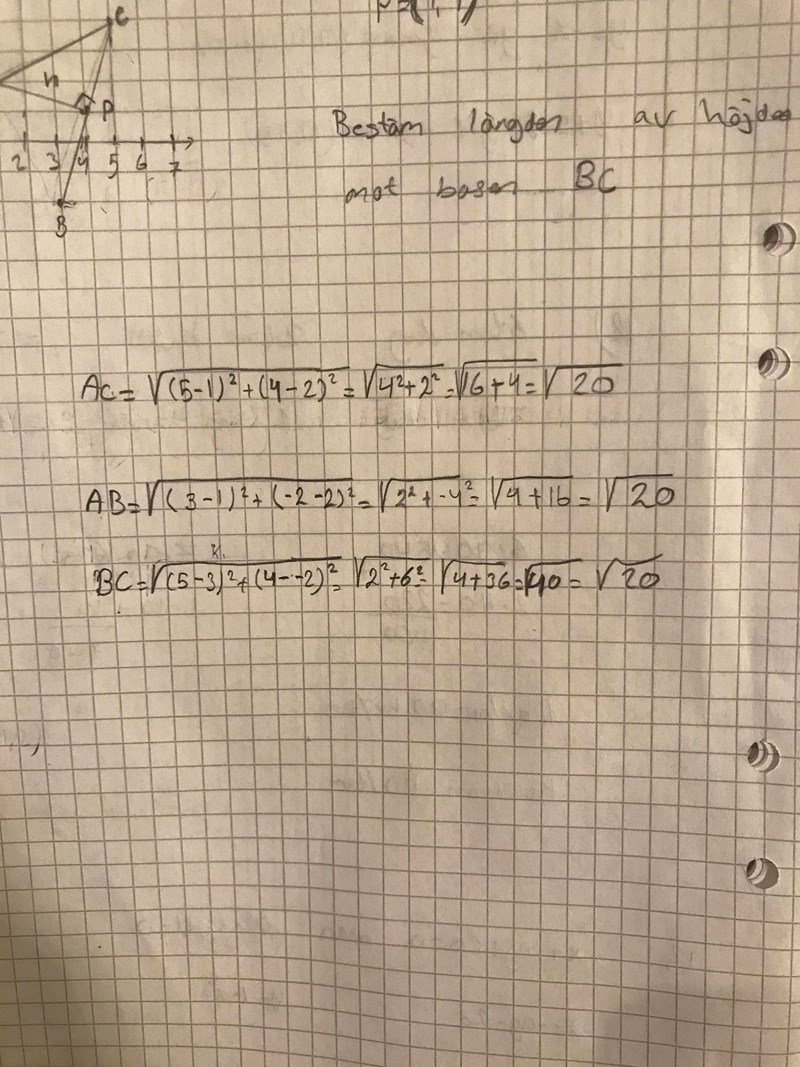 C
n
P
2 3 4 5 6 7
B
Bestäm längden av höjden
mot basen BC
AC = √(5-1)²+(4-2)² = √4²+2² = √16+4 = √20
AB = √(3-1)²+(-2-2)² = √2²+-4² = √4+16 = √20
BC = √(5-3)²+(4--2)² = √2²+6² = √4+36 = √40 = √20